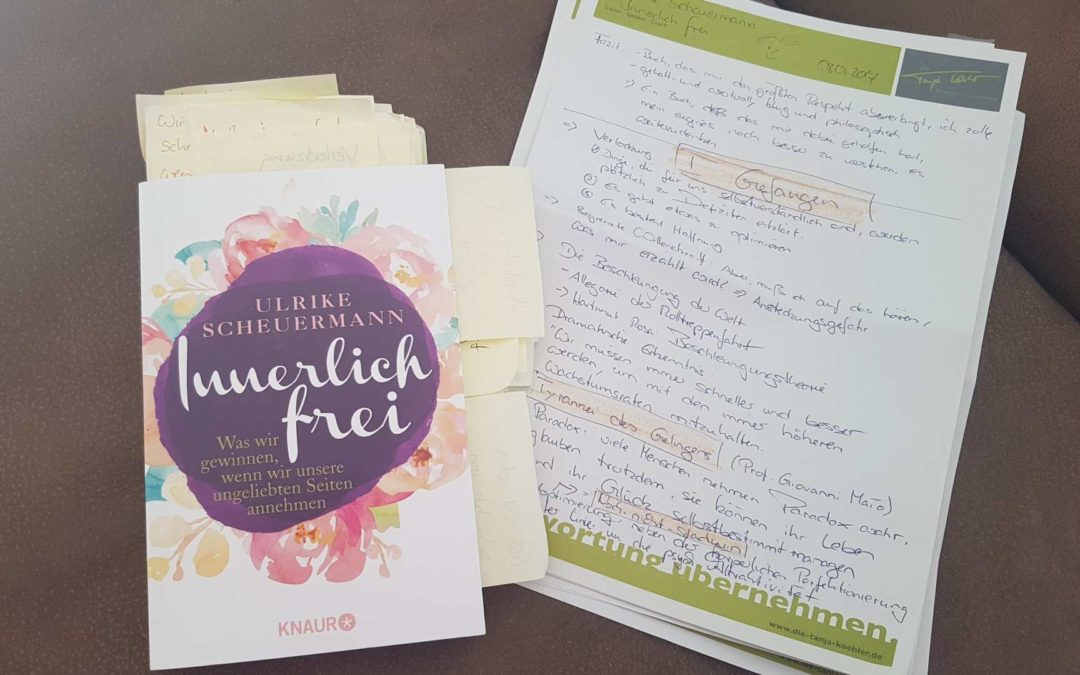 Wir
Schr
wen
Verlockung
ULRIKE
SCHEUERMANN
Innerlich
frei
Was wir
gewinnen,
wenn wir unsere
ungeliebten Seiten
annehmen
KNAUR
Scheuermann
Innerlich frei
Trainer Speaker Coach
08.01.2017
Die
Tanja Köhler
Fazit: - Buch, das mir den größten Respekt abverlangt, ich zolle
- gehalt- und wertvoll, klug und philosophisch
=> Ein Buch, das mir dabei geholfen hat,
mein eigenes noch besser zu verstehen, es
weiterzudenken
Gefangen
=> Verlockung
① Dinge, die für uns selbstverständlich sind, werden
plötzlich zu Defiziten erklärt.
② Es gibt etwas zu optimieren
③ Es besteht Hoffnung
=> Begrenzte Willenskraft. Aber: muß ich auf das hören,
was mir erzählt wurde => Ansteckungsgefahr
Die Beschleunigung der Welt
- Allegorie der Rolltreppenfahrt
-> Hartmut Rosa: Beschleunigungstheorie
Dramatische Erkenntnis:
"Wir müssen immer schneller und besser
werden, um mit den immer höheren
Wachstumsraten mitzuhalten.
Tyrannei des Gelingens (Prof. Giovanni Maio)
Paradox: viele Menschen nehmen Paradox wahr,
glauben trotzdem, sie können ihr Leben
und ihr Glück selbstbestimmt managen
optimierung: neben der körperlichen Perfektionierung
Linie um die psych. Attraktivität
wortung übernehmen.
www.die-tanja-koehler.de